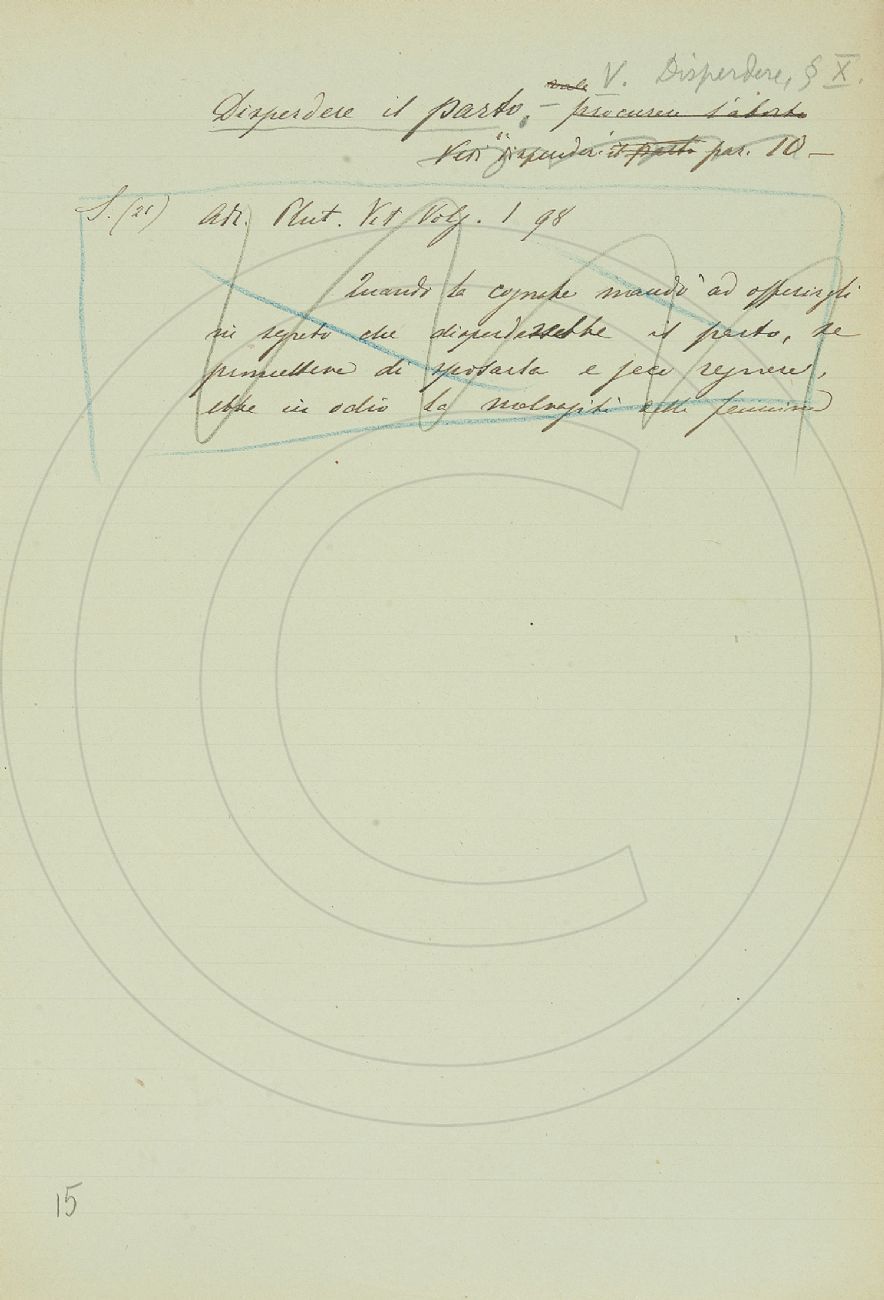 V. Disperdere, § X.
Disperdere il parto, – vale procurare l'aborto
Vedi "disperder il parto par. 10 –
S. (21) Adr. Plut. Vit Volg. 1 98
Quando la cognata mandò ad offerirgli
in segreto che disperderebbe il parto, se
prometteva di sposarla e farla regnare,
ebbe in odio la malvagità della femmina
15